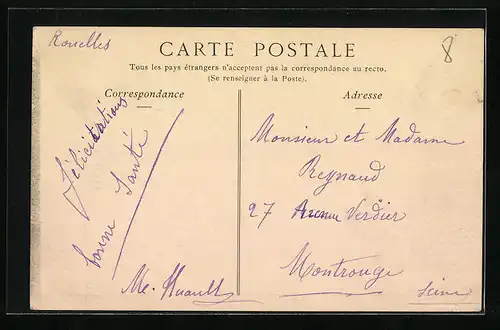 Rouelles
8
CARTE POSTALE
Tous les pays étrangers n'acceptent pas la correspondance au recto.
(Se renseigner à la Poste).
Correspondance
Adresse
félicitations
bonne Santé
Me. Huault
Monsieur et Madame
Reynaud
27 Avenue Verdier
Montrouge
Seine